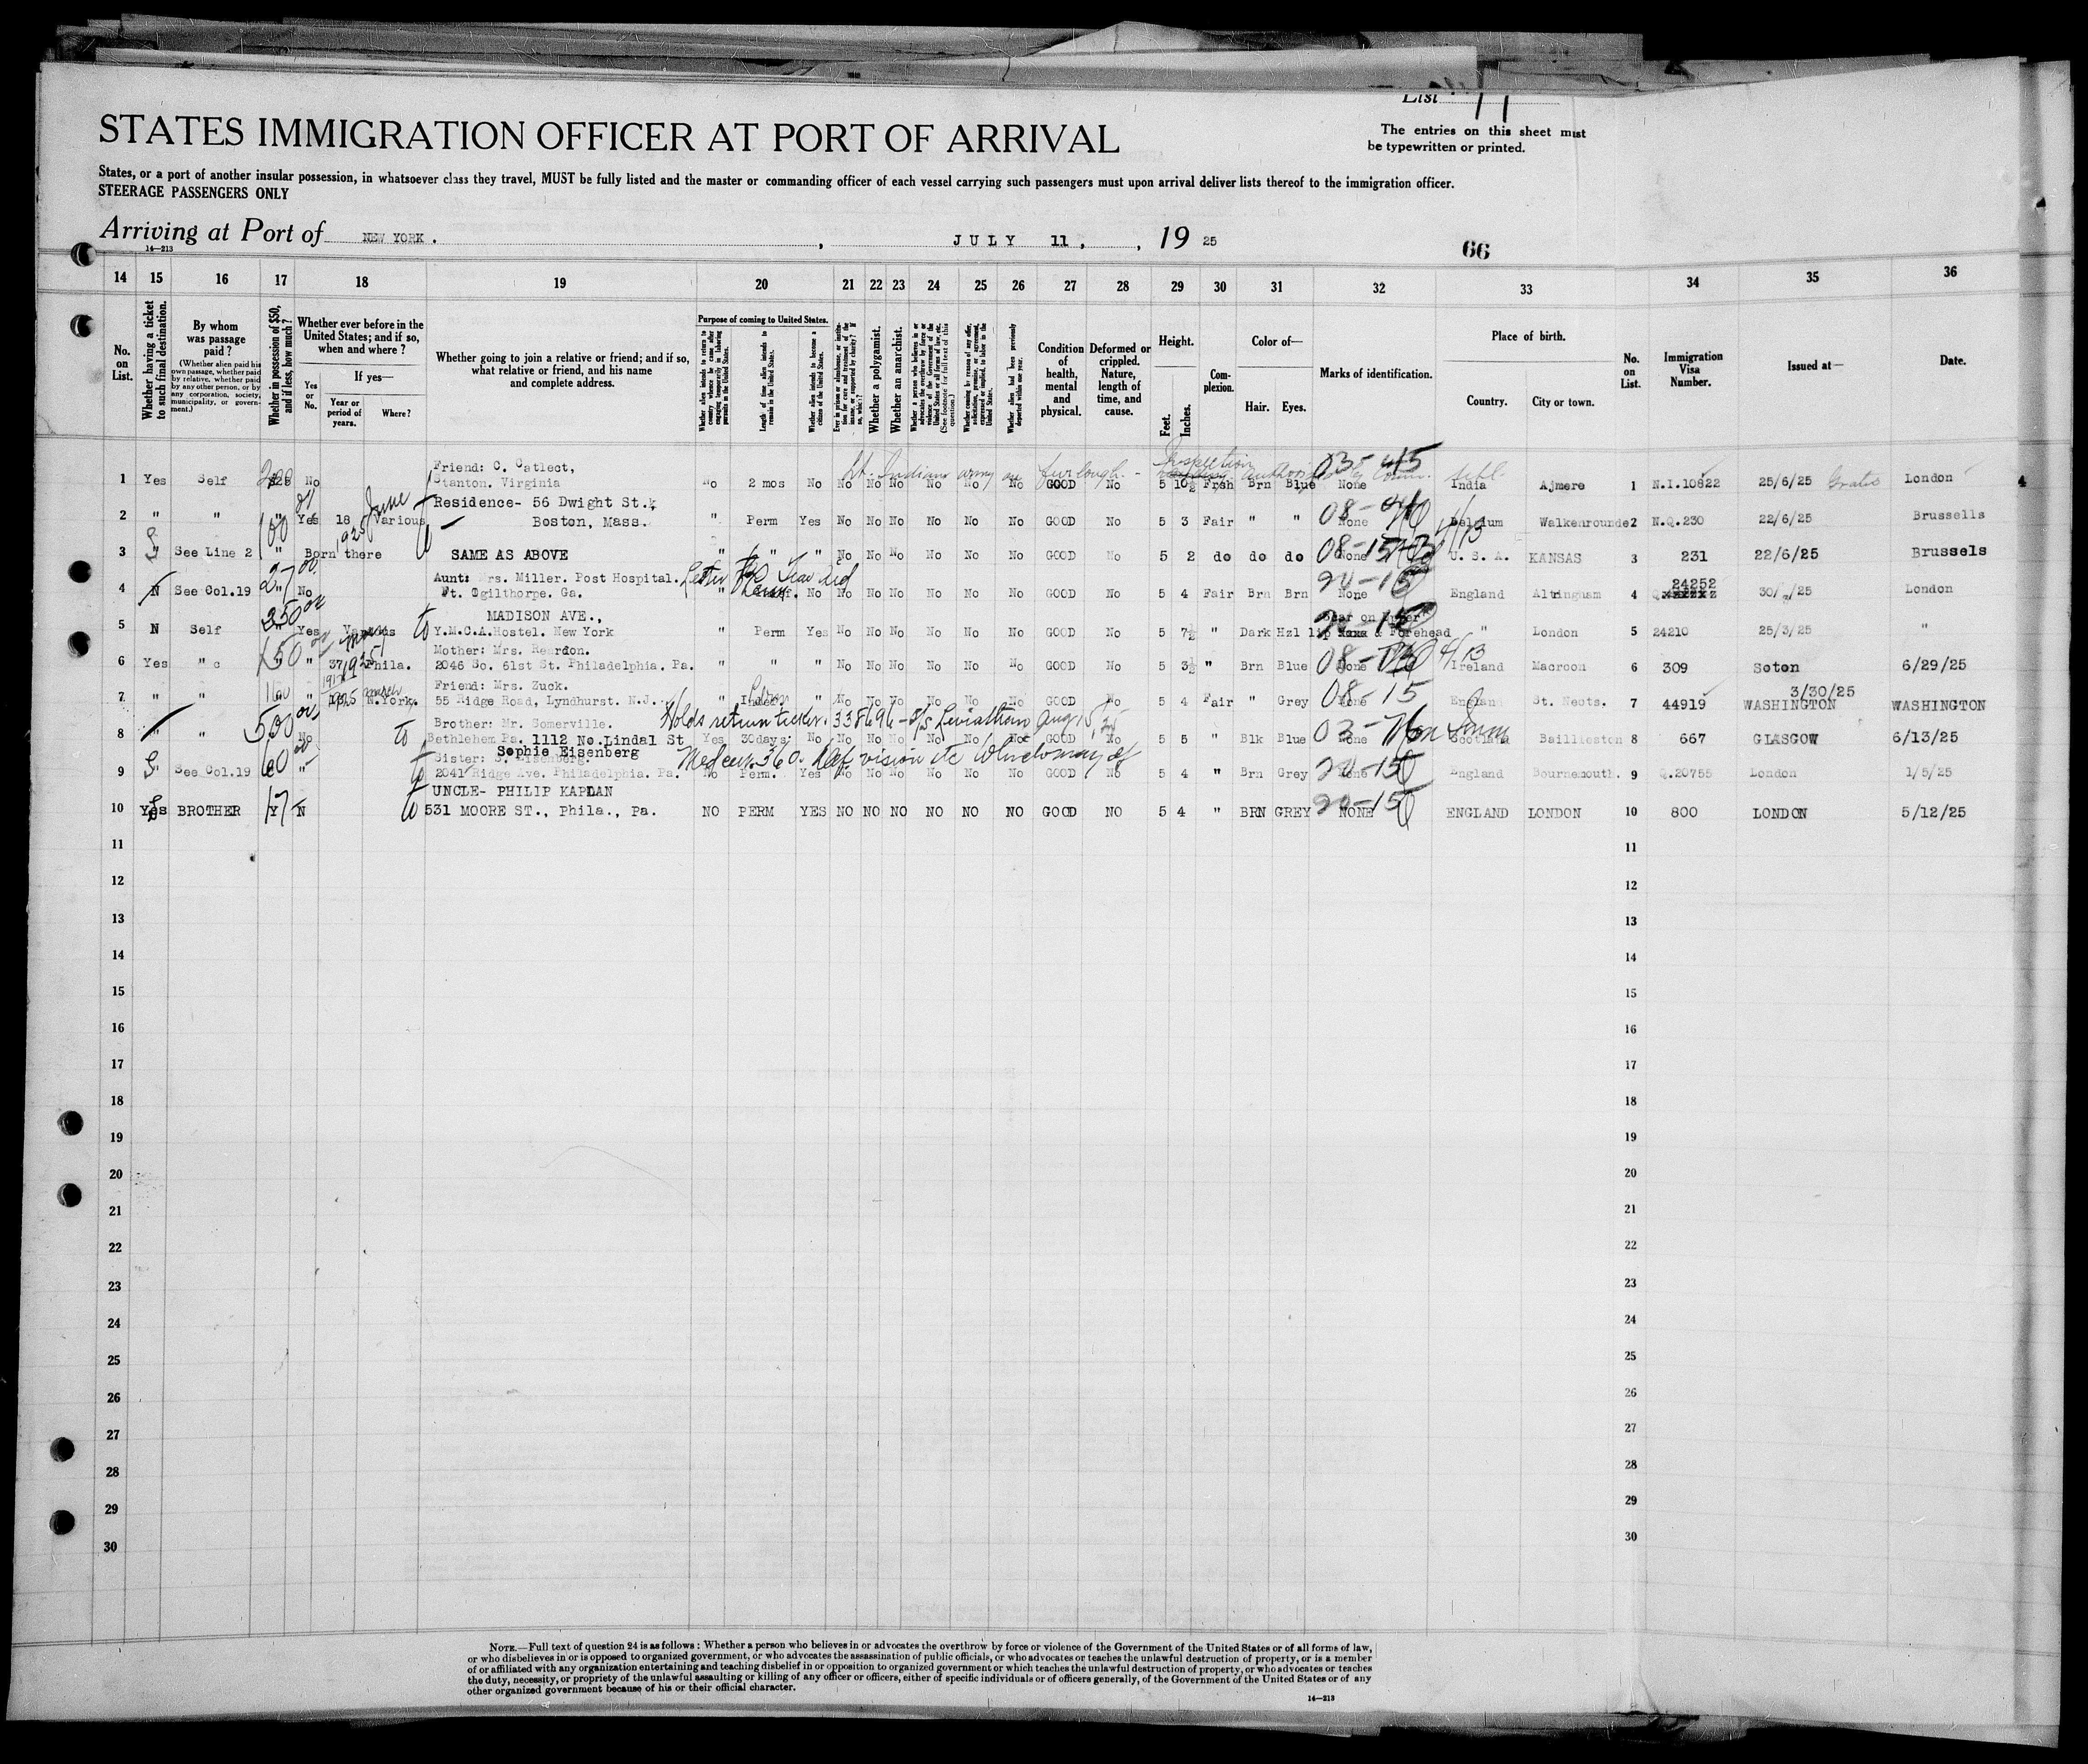 List 11
STATES IMMIGRATION OFFICER AT PORT OF ARRIVAL
The entries on this sheet must
be typewritten or printed.
States, or a port of another insular possession, in whatsoever class they travel, MUST be fully listed and the master or commanding officer of each vessel carrying such passengers must upon arrival deliver lists thereof to the immigration officer.
STEERAGE PASSENGERS ONLY
Arriving at Port of NEW YORK. , JULY 11, , 19 25
14—213
66
14 15 16 17 18 19 20 21 22 23 24 25 26 27 28 29 30 31 32 33 34 35 36
No. on List.
Whether having a ticket to such final destination.
By whom was passage paid?
(Whether alien paid his own passage, whether paid by relative, whether paid by any other person, or by any corporation, society, municipality, or government.)
Whether in possession of $50, and if less, how much?
Whether ever before in the United States; and if so, when and where?
Yes or No.
If yes—
Year or period of years.
Where?
Whether going to join a relative or friend; and if so, what relative or friend, and his name and complete address.
Purpose of coming to United States.
Whether alien intends to return to country whence he came after engaging temporarily in laboring pursuits in the United States.
Length of time alien intends to remain in the United States.
Whether alien intends to become a citizen of the United States.
Ever in prison or almshouse, or institution for care and treatment of the insane, or supported by charity? If so, which?
Whether a polygamist.
Whether an anarchist.
Whether a person who believes in or advocates the overthrow by force or violence of the Government of the United States or of all forms of law, etc. (See footnote for full text of this question.)
Whether coming by reason of any offer, solicitation, promise, or agreement, expressed or implied, to labor in the United States.
Whether alien had been previously deported within one year.
Condition of health, mental and physical.
Deformed or crippled. Nature, length of time, and cause.
Height.
Feet. Inches.
Complexion.
Color of—
Hair. Eyes.
Marks of identification.
Place of birth.
Country. City or town.
No. on List.
Immigration Visa Number.
Issued at—
Date.
Lt. Indian army on furlough. - Inspection 03-415
Friend: C. Catlect,
1 Yes Self No Stanton. Virginia No 2 mos No No No No No No No GOOD No 5 10½ Frsh Brn Blue None India Ajmere 1 N.I.10822 25/6/25 Gratis London
June 1925
Residence- 56 Dwight St.,
2 " " Yes 18 Various Boston, Mass. " Perm Yes No No No No No No GOOD No 5 3 Fair " " None Belgium Walkenrounde 2 N.Q.230 22/6/25 Brussells
100
3 " See Line 2 " Born there SAME AS ABOVE " " " No No No No No No GOOD No 5 2 do do do None U. S. A. KANSAS 3 231 22/6/25 Brussels
27
Aunt: Mrs. Miller. Post Hospital.
4 N See Col.19 " No Ft. Ogilthorpe. Ga. " No No No No No No No GOOD No 5 4 Fair Brn Brn None 20-15 England Altringham 4 24252 London
350
MADISON AVE.,
5 N Self " Yes Various to Y.M.C.A.Hostel. New York " Perm Yes No No No No No No GOOD No 5 7½ " Dark Hzl Scar on upper lip & Forehead " London 5 24210 25/3/25 "
150
Mother: Mrs. Reardon.
6 Yes " " 37 Phila. 2046 So. 61st St. Philadelphia. Pa. " " " No No No No No No GOOD No 5 3½ " Brn Blue None Ireland Macroon 6 309 Soton 6/29/25
Friend: Mrs. Zuck.
7 " " " 1925 N.York. 55 Ridge Road, Lyndhurst. N.J. " No No No No No No GOOD No 5 4 Fair " Grey None 08-15 England St. Neots. 7 44919 3/30/25 WASHINGTON WASHINGTON
500
Holds return ticket. 338696 - S/S Leviathan Aug 15, 25
Brother: Mr. Somerville.
8 " " No to Bethlehem Pa. 1112 No.Lindal St Yes 30days No No No No No No No GOOD No 5 5 " Blk Blue None 03-Non Imm Scotland Baillieston 8 667 GLASGOW 6/13/25
60
Sophie Eisenberg
Med cert. 360. Def vision
Sister: S. Eisenberg.
9 See Col.19 " to 2041 Ridge Ave. Philadelphia. Pa. No Perm. Yes No No No No No No GOOD No 5 4 " Brn Grey None 20-15 England Bournemouth. 9 Q.20755 London 1/5/25
UNCLE- PHILIP KAPLAN
10 Yes BROTHER 17 N to 531 MOORE ST., Phila., Pa. NO PERM YES NO NO NO NO NO NO GOOD NO 5 4 " BRN GREY NONE 20-15 ENGLAND LONDON 10 800 LONDON 5/12/25
11 11
12 12
13 13
14 14
15 15
16 16
17 17
18 18
19 19
20 20
21 21
22 22
23 23
24 24
25 25
26 26
27 27
28 28
29 29
30 30
NOTE.—Full text of question 24 is as follows: Whether a person who believes in or advocates the overthrow by force or violence of the Government of the United States or of all forms of law,
or who disbelieves in or is opposed to organized government, or who advocates the assassination of public officials, or who advocates or teaches the unlawful destruction of property, or is a member
of or affiliated with any organization entertaining and teaching disbelief in or opposition to organized government or which teaches the unlawful destruction of property, or who advocates or teaches
the duty, necessity, or propriety of the unlawful assaulting or killing of any officer or officers, either of specific individuals or of officers generally, of the Government of the United States or of any
other organized government because of his or their official character.
14—213